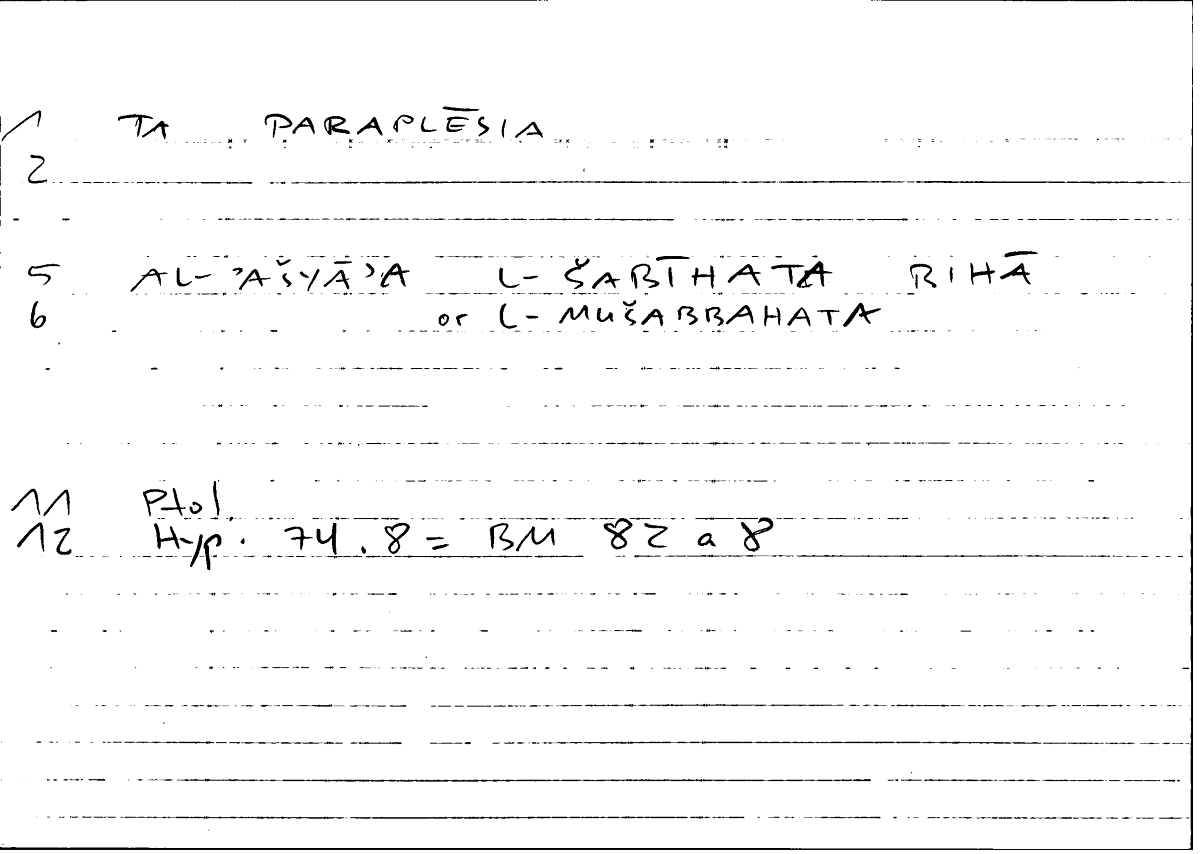 1 TA PARAPLĒSIA
2
5 AL-ʾAŠYĀʾA L-ŠABĪHATA BIHĀ
6 or L-MUŠABBAHATA
11 Ptol.
12 Hyp. 74.8 = BM 82 a 8